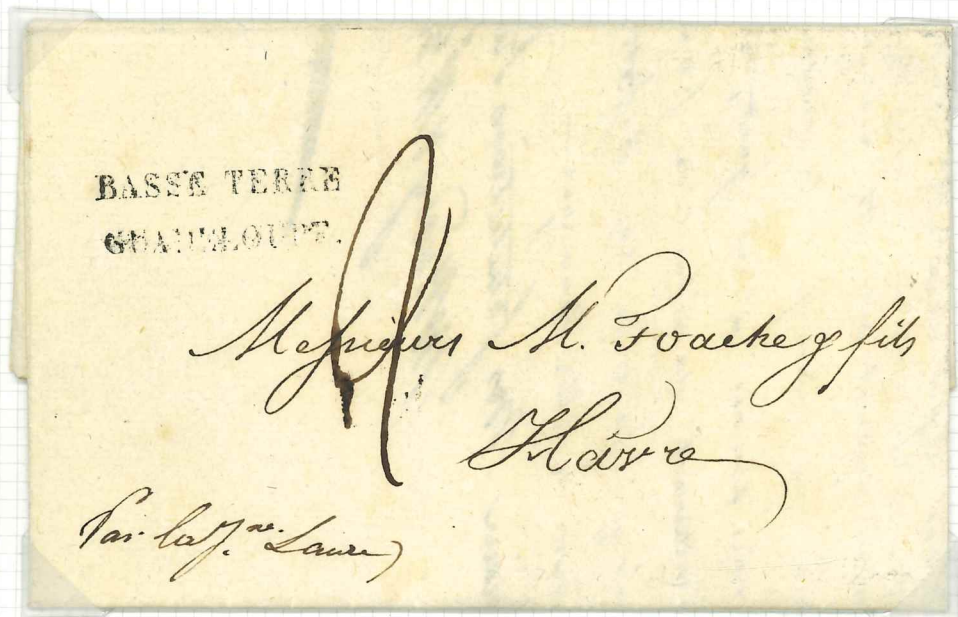 BASSE TERRE
GUADELOUPE.
Messieurs M. Foache & fils
Hâvre
Par la Jne. Laure